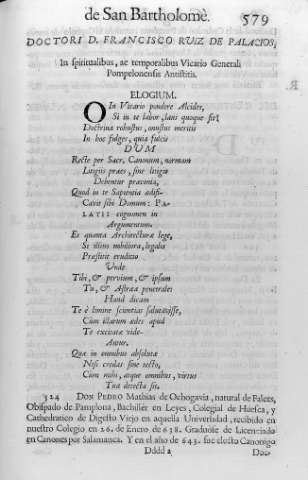 de San Bartholomè. 579
DOCTORI D. FRANCISCO RUIZ DE PALACIOS,
In spiritualibus, ac temporalibus Vicario Generali
Pompelonensis Antistitis.
ELOGIUM.
On Vicario pondere Alcides,
Si in te labor, laus quoque sit!
Doctrina robustus, onustus meritis
In hoc fulges, quia fulcis
DUM
Recte per Sacr. Canonum, normam
Litigiis praes, sine litigio
Debentur praemia,
Quod in te Sapientia aedifi-
cavit sibi Domum: PA-
LATII cognomen in
Argumentum.
Ex quanta Architecturae lege,
Si illius nobiliora, legalis
Praestitit eruditio
Unde
Tibi, & pervium, & ipsum
Tu, & Astraea penetrales
Haud dicam
Te è limine scientias salutavisse,
Cùm illarum aedes apud
Te excitatae vide-
Antur.
Quae in omnibus absolutae
Nisi credas sine tecto,
Cùm mihi, atque omnibus, virtus
Tua detecta sit.
324 DON PEDRO Mathias de Ochogavia, natural de Falces,
Obispado de Pamplona, Bachillèr en Leyes, Colegial de Huesca, y
Cathedratico de Digesto Viejo en aquella Universidad, recibido en
nuestro Colegio en 26. de Enero de 638. Graduòse de Licenciado
en Canones por Salamanca. Y en el año de 643. fue electo Canonigo
Dddd 2 Doc-